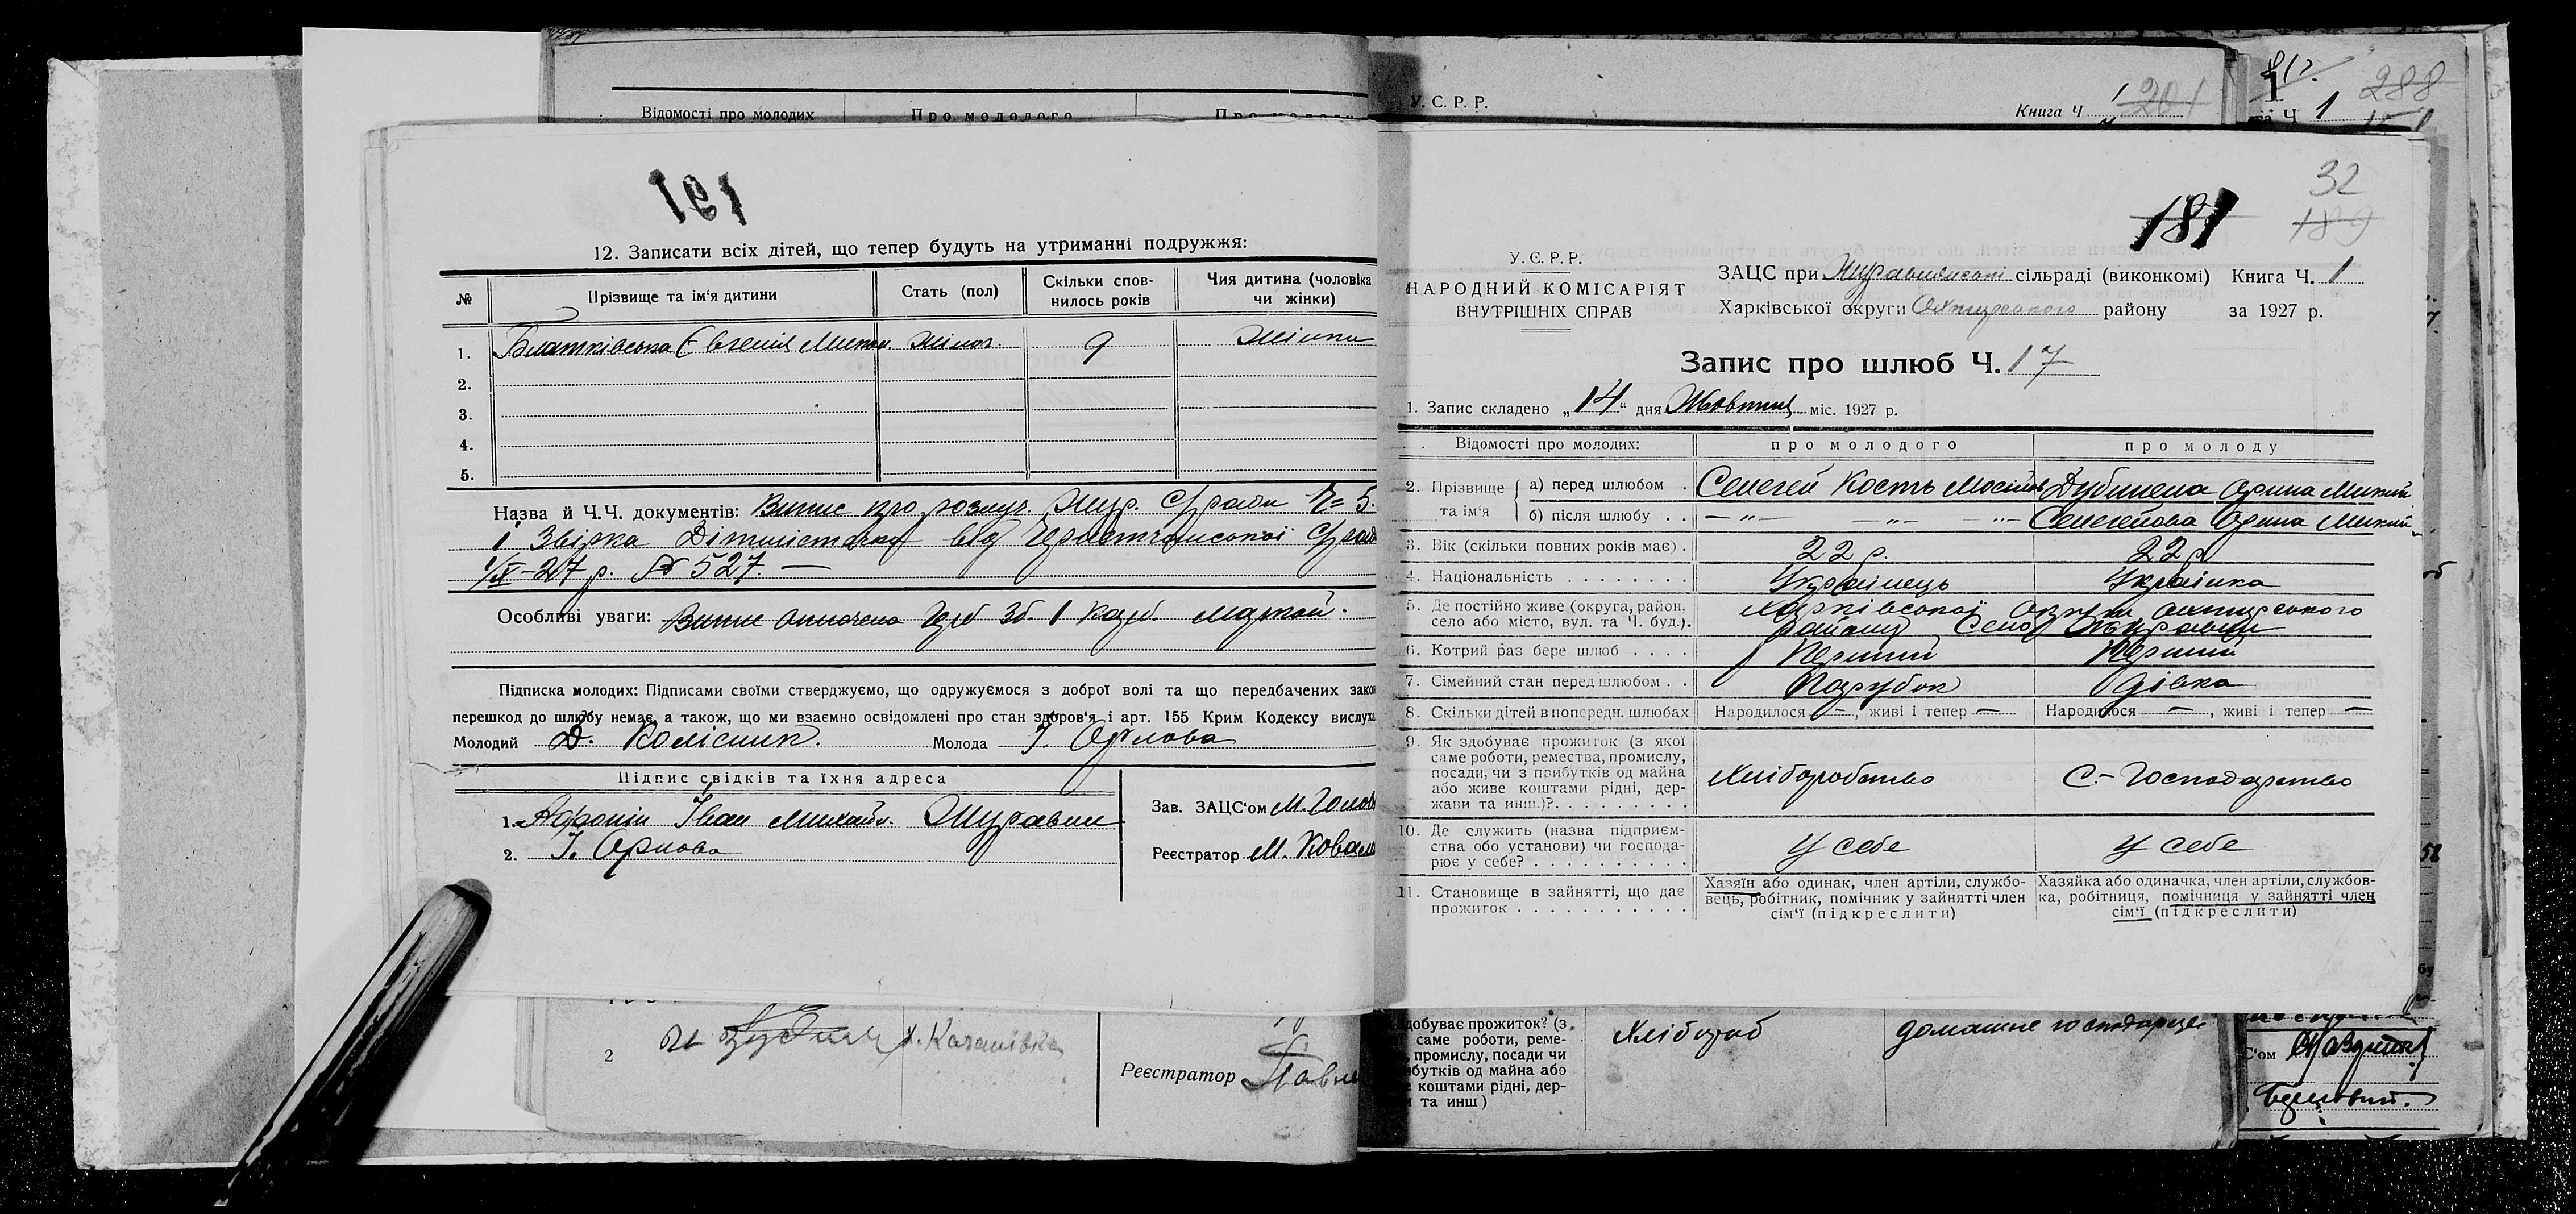 Відомості про молодих
Про молодого
У. С. Р. Р.
Книга Ч 1
201
288
1
191
12. Записати всіх дітей, що тепер будуть на утриманні подружжя:
№
Прізвище та ім'я дитини
Стать (пол)
Скільки спов-
нилось років
Чия дитина (чоловіка
чи жінки)
1. Євгенія жіноч. 9 жінки
2.
3.
4.
5.
Назва й Ч.Ч. документів: Випис про розлуч. Жур. С/ради № 5.
і Звірка від С/ради
27 р. № 527. —
Особливі уваги: Випис Зб. 1 карб. маркой.
Підписка молодих: Підписами своїми стверджуємо, що одружуємося з доброї волі та що передбачених зако
перешкод до шлюбу немає, а також, що ми взаємно освідомлені про стан здоров'я і арт. 155 Крим Кодексу вислуха
Молодий Д. Колісник. Молода Орлова
Підпис свідків та їхня адреса
1. Іван Михайл. Журавли
2. Орлова
Зав. ЗАЦС'ом М. Голов
Реєстратор М. Ковал
2
х. Качанівка
Реєстратор Павл
32
181
189
У. С. Р. Р.
НАРОДНИЙ КОМІСАРІЯТ
ВНУТРІШНІХ СПРАВ
ЗАЦС при сільраді (виконкомі) Книга Ч. 1
Харківської округи Охтирського району за 1927 р.
Запис про шлюб Ч. 17
1. Запис складено „14“ дня Жовтня міс. 1927 р.
Відомості про молодих:
про молодого
про молоду
2. Прізвище та ім'я
а) перед шлюбом . Селегей Кость Дубинела Орина Микий
б) після шлюбу . . —〃— —〃— —〃— Селегейова Орина Микий
3. Вік (скільки повних років має) . 22 р. 22 р
4. Національність . . . . . . . . Українець Українка
5. Де постійно живе (округа, район, Харківської Округи Охтирського
село або місто, вул. та Ч. буд.). району Село Журавли
6. Котрий раз бере шлюб . . . . Перший Перший
7. Сімейний стан перед шлюбом . . Парубок Дівка
8. Скільки дітей в попередн. шлюбах Народилося —, живі і тепер — Народилося —, живі і тепер —
9. Як здобуває прожиток (з якої
саме роботи, ремества, промислу,
посади, чи з прибутків од майна
або живе коштами рідні, дер-
жави та инш.)?. . . . . . . . .
Хліборобство
С.-Господарство
10. Де служить (назва підприєм-
ства обо установи) чи господа-
рює у себе? . . . . . . . . . .
У себе
У себе
11. Становище в зайнятті, що дає
прожиток . . . . . . . . . . .
Хазяїн або одинак, член артіли, службо-
вець, робітник, помічник у зайнятті член
сім'ї (підкреслити)
Хазяйка або одиначка, член артіли, службов-
ка, робітниця, помічниця у зайнятті член
сім'ї (підкреслити)
добуває прожиток? (з
саме роботи, реме-
промислу, посади чи
ибутків од майна або
коштами рідні, дер-
та инш)
Хлібороб
домашнє господарц
С'ом